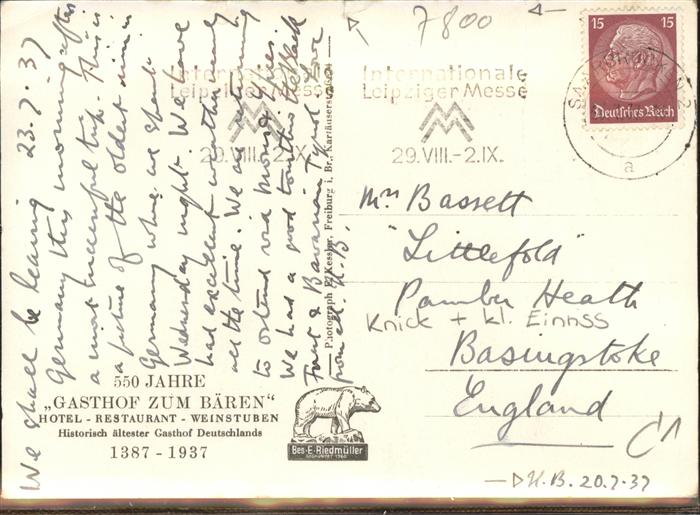 7800
15 15
Deutsches Reich
Internationale
Leipziger Messe
29.VIII.-2.IX.
Internationale
Leipziger Messe
29.VIII.-2.IX.
a
We shall be leaving 23.7.37
Germany this morning after
a most successful trip. This is
a picture of the oldest inn in
Germany where we spent
Wednesday night. We have
had excellent weather nearly
all the time. We are returning
to Ostend via
We had a good tour thro the Black
Forest & Bavarian Tyrol. Love
from all. H.B.
Photograph F. Kessler, Freiburg i. Br., Kartäuserstraße
Mrs Bassett
"Littlefold"
Pamber Heath
Knick + kl. Einriss
Basingstoke
England
550 JAHRE
„GASTHOF ZUM BÄREN"
HOTEL - RESTAURANT - WEINSTUBEN
Historisch ältester Gasthof Deutschlands
1387 - 1937
Bes. E. Riedmüller
H.B. 20.7.37